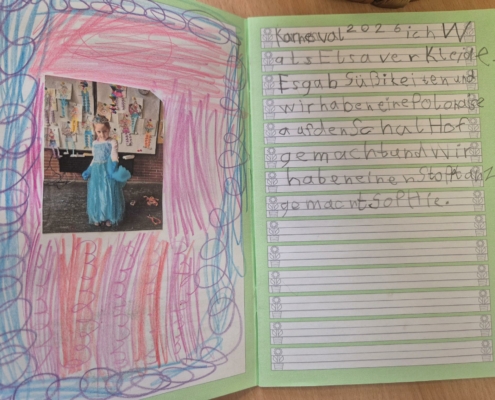 Karneval 2025 ich W
als Elsa verKleide.
Es gab Süßikeiten und
wir haben eine Polonaise
a auf den Schal Hof
gemacht und wir
haben einen Stopt anz
gemacht SOPHIe.